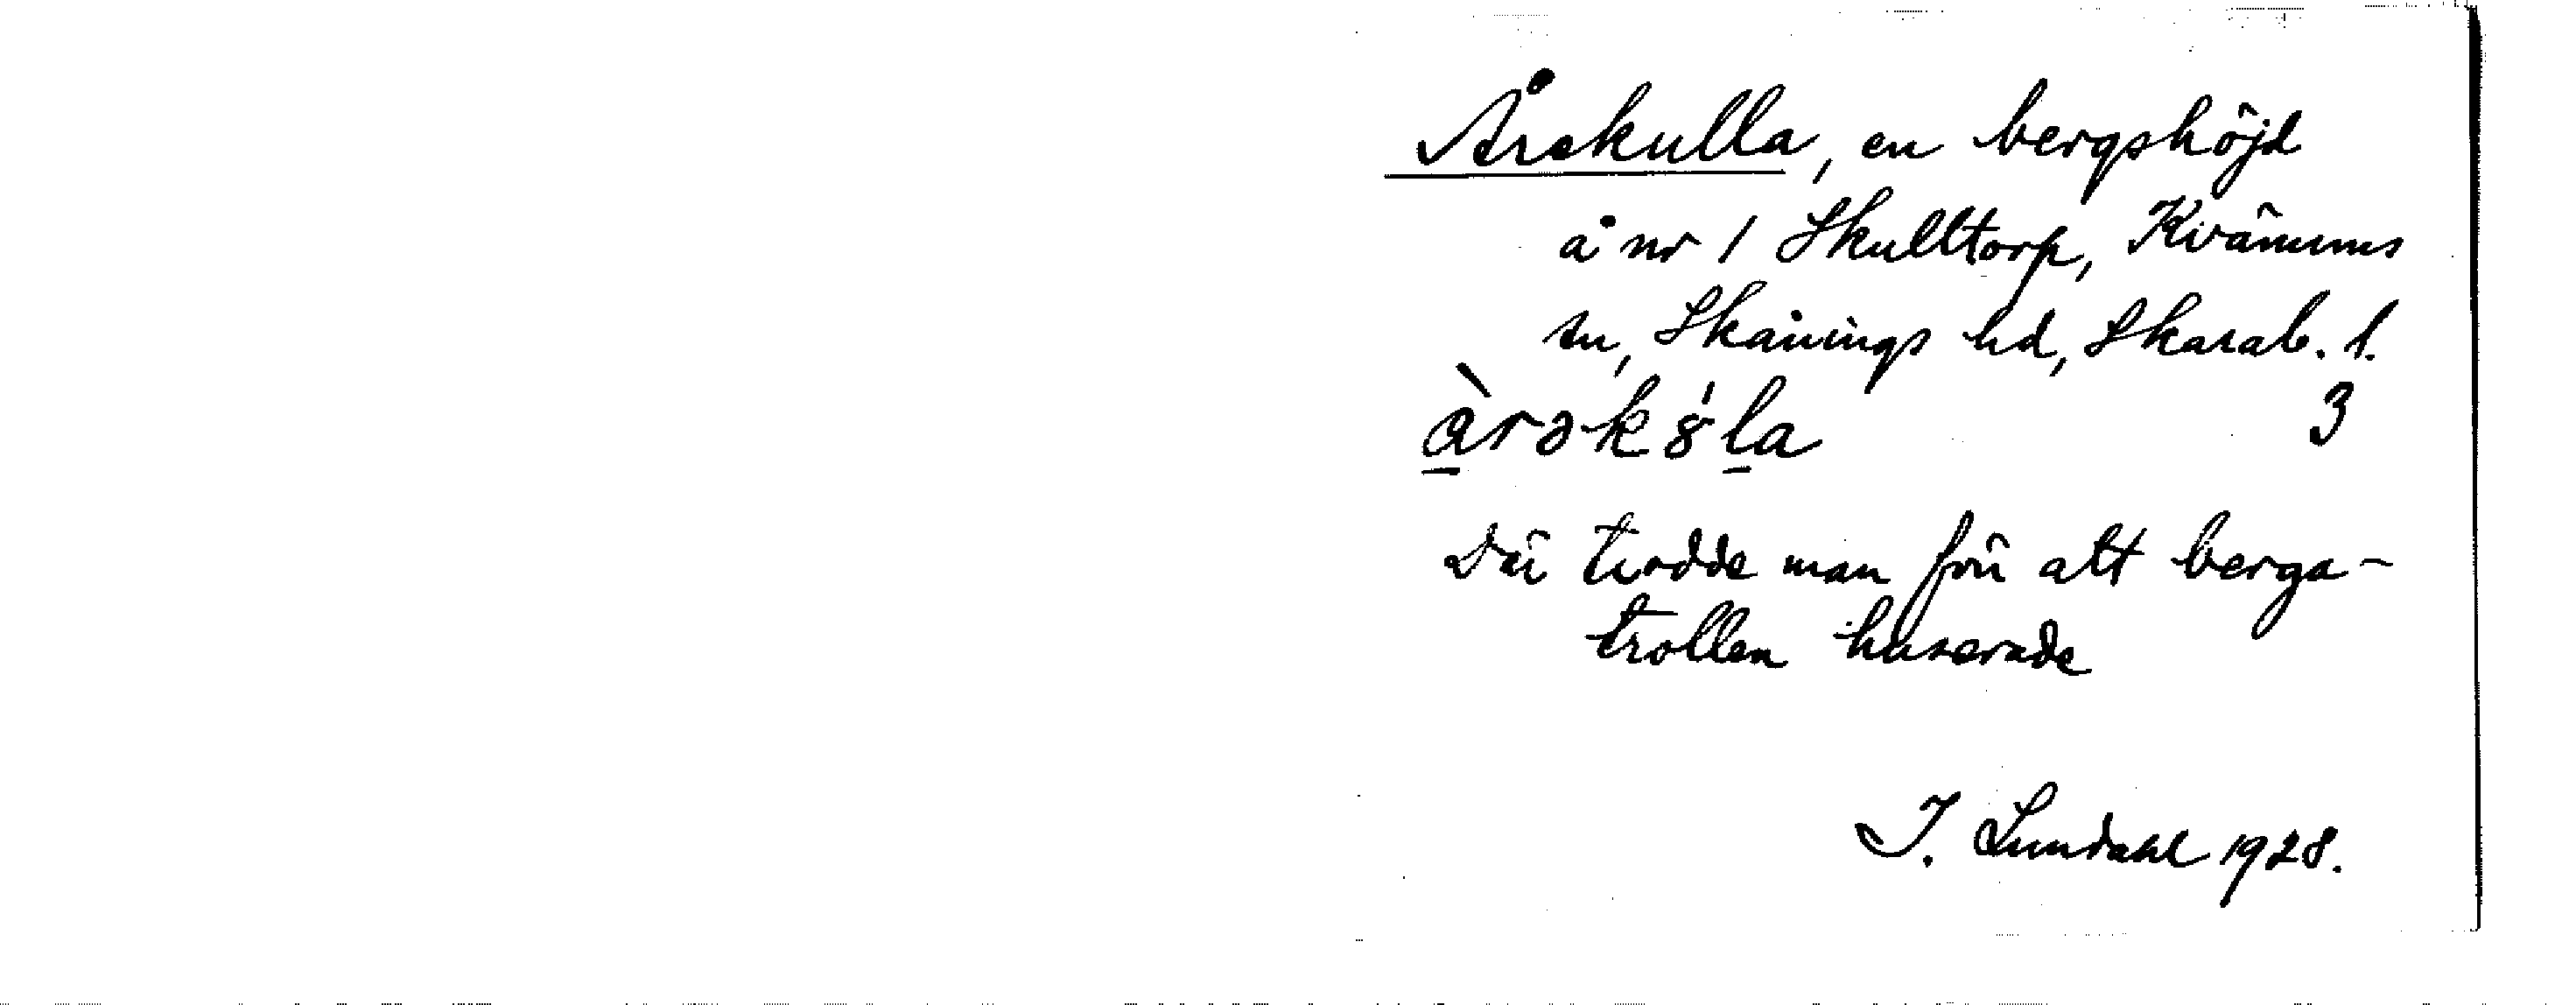 Årekulla, en bergshöjd
å nr 1 Skulltorp, Kvänums
sn, Skånings hd, Skarab. l.
àrək8́la 3
Där trodde man förr att berga-
trollen huserade
I. Lundahl 1928.